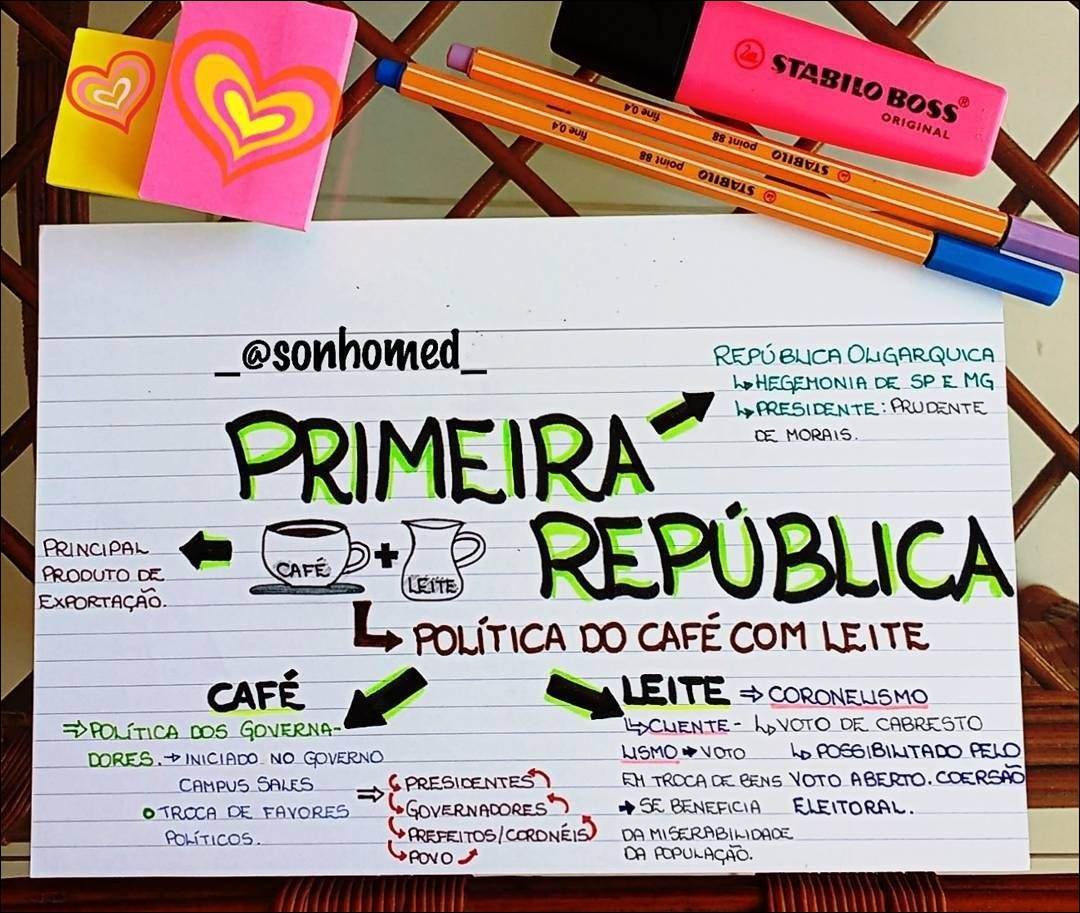 STABILO BOSS®
ORIGINAL
STABILO point 88 fine 0,4
STABILO point 88 fine 0,4
_@sonhomed_
REPÚBLICA OLIGARQUICA
↳HEGEMONIA DE SP E MG
↳PRESIDENTE: PRUDENTE
DE MORAIS.
PRIMEIRA
REPÚBLICA
PRINCIPAL
PRODUTO DE
EXPORTAÇÃO.
CAFÉ + LEITE
POLÍTICA DO CAFÉ COM LEITE
CAFÉ
⇒POLÍTICA DOS GOVERNA-
DORES. → INICIADO NO GOVERNO
CAMPUS SALES
TROCA DE FAVORES
POLÍTICOS.
⇒ PRESIDENTES
GOVERNADORES
PREFEITOS/CORONÉIS
POVO
LEITE ⇒ CORONELISMO
↳CLIENTE-
LISMO → VOTO
EM TROCA DE BENS
→ SE BENEFICIA
DA MISERABILIDADE
DA POPULAÇÃO.
↳VOTO DE CABRESTO
↳POSSIBILITADO PELO
VOTO ABERTO. COERSÃO
ELEITORAL.